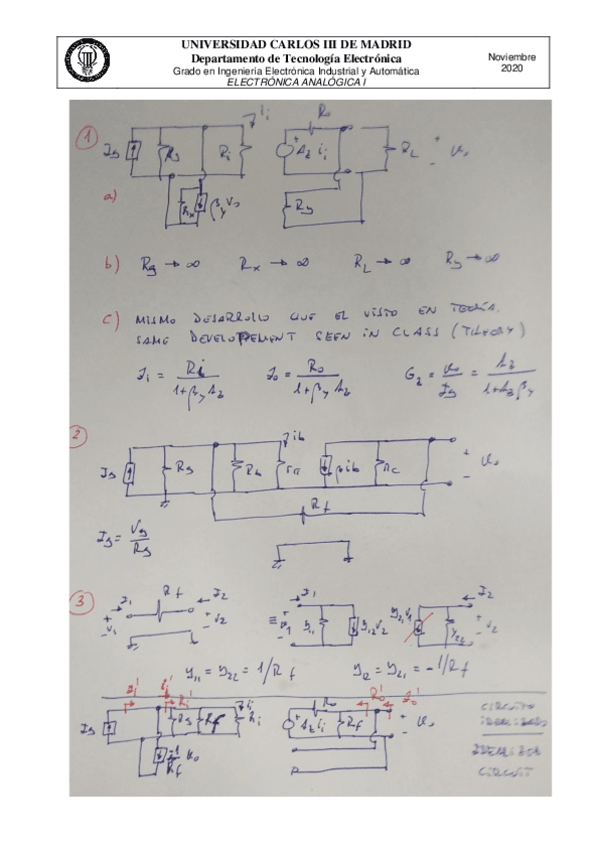 UNIVERSIDAD CARLOS III DE MADRID
Departamento de Tecnología Electrónica
Grado en Ingeniería Electrónica Industrial y Automática
ELECTRÓNICA ANALÓGICA I
Noviembre
2020
1
Is Rs Ri ii Ro Az ii RL + - vo
a) Rx βy vo Ry
b) Rg → ∞ Rx → ∞ RL → ∞ Ry → ∞
c) MISMO DESARROLLO QUE EL VISTO EN TEORÍA.
SAME DEVELOPEMENT SEEN IN CLASS (THEORY)
Zi = Ri / (1+βy Az) Zo = Ro / (1+βy Az) Gz = vo / Is = Az / (1+Az βy)
2
Is Rs Rb rπ ib βib Rc + - vo
Rf
Is = Vs / Rs
3
I1 Rf I2 + v1 - + v2 - ≡ I1 + v1 y11 y12 v2 y21 v1 y22 I2 + v2 -
y11 = y22 = 1/Rf y12 = y21 = -1/Rf
Is Rs Rf Ri ii Ro Az ii Rf Ro' + - vo
-1/Rf vo
CIRCUITO
IDEALIZADO
IDEALIZED
CIRCUIT